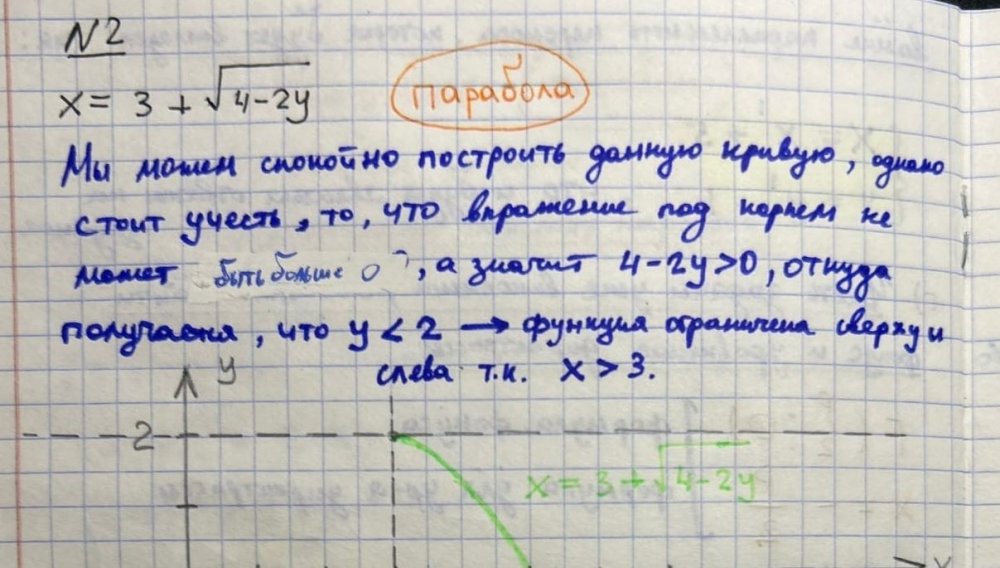 N2
x = 3 + √4-2y
парабола
Мы можем спокойно построить данную кривую, однако
стоит учесть, то, что выражение под корнем не
может быть больше 0, а значит 4-2y>0, откуда
получается, что y < 2 → функция ограничена сверху и
слева т.к. x > 3.
y
2
x = 3 + √4-2y
x